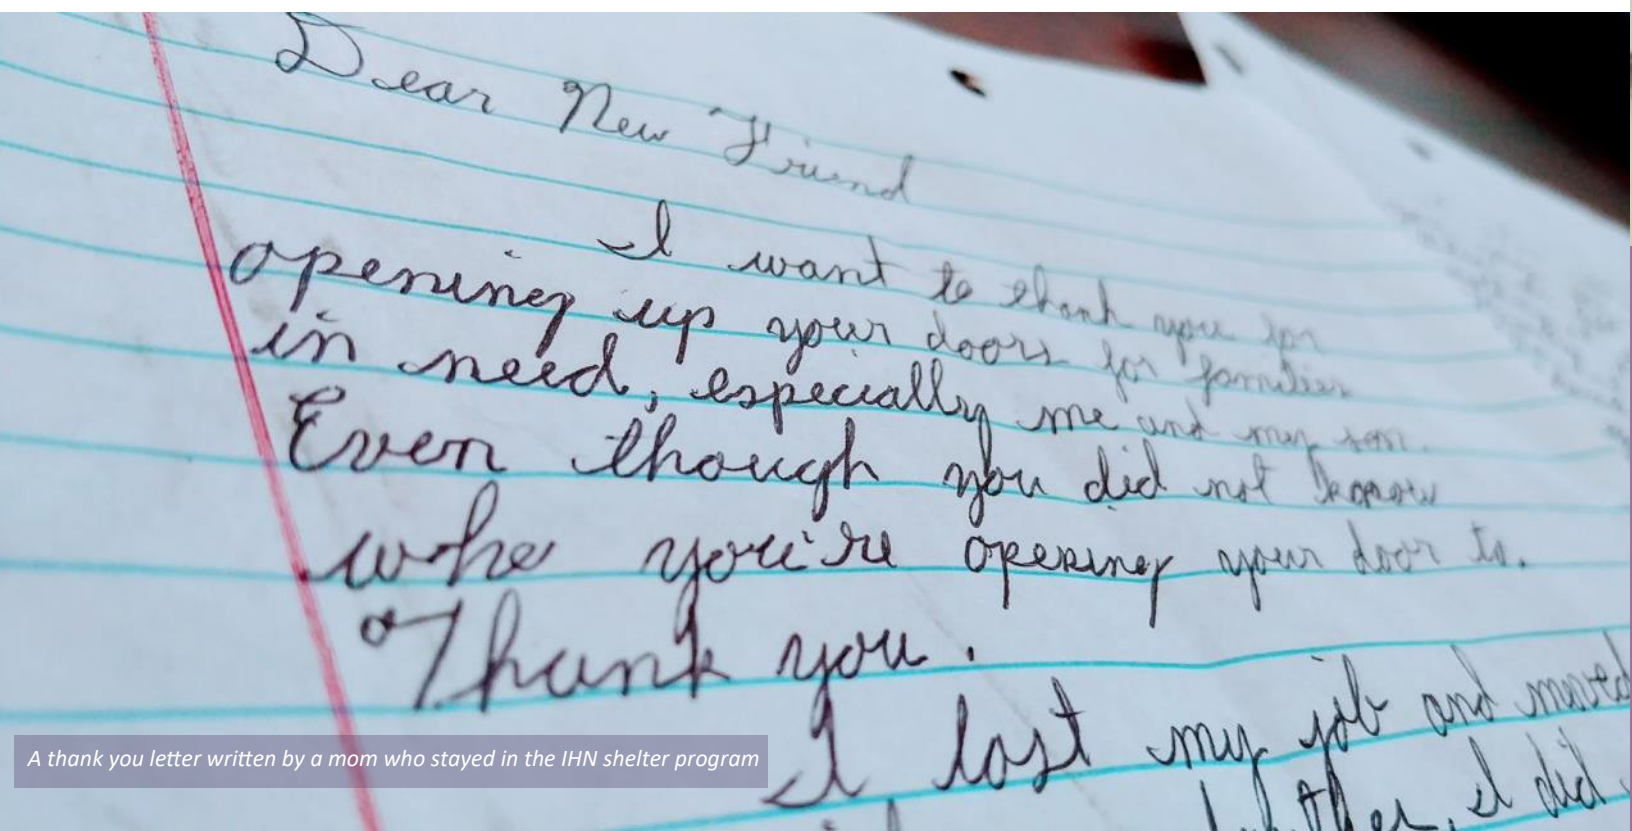 Dear New Friend
I want to thank you for
opening up your doors for families
in need, especially me and my son.
Even though you did not know
who you're opening your door to.
Thank you.
I lost my job and moved
I did
A thank you letter written by a mom who stayed in the IHN shelter program